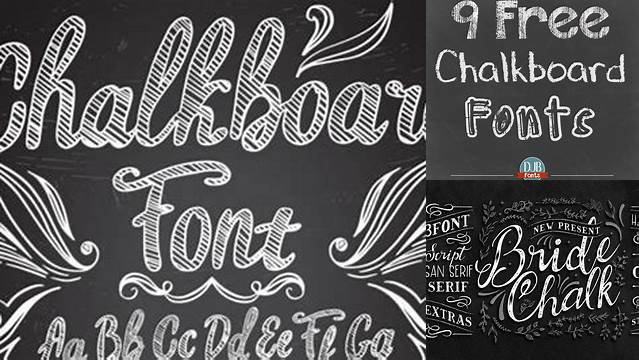 Chalkboar
Font
Aa Bb Cc Dd Ee Ff Gg
9 Free
Chalkboard
Fonts
DJB
Fonts
NEW PRESENT
Bride
Chalk
BFONT
Script
SAN SERIF
SERIF
EXTRAS